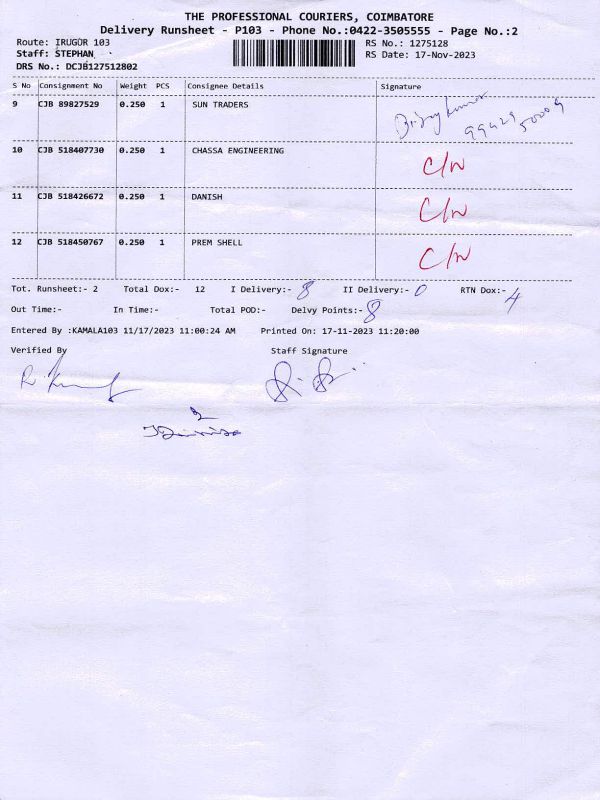 THE PROFESSIONAL COURIERS, COIMBATORE
Delivery Runsheet - P103 - Phone No.:0422-3505555 - Page No.:2
Route: IRUGUR 103 RS No.: 1275128
Staff: STEPHAN RS Date: 17-Nov-2023
DRS No.: DCJB127512802
S No Consignment No Weight PCS Consignee Details Signature
9 CJB 89827529 0.250 1 SUN TRADERS
10 CJB 518407730 0.250 1 CHASSA ENGINEERING C/N
11 CJB 518426672 0.250 1 DANISH C/N
12 CJB 518450767 0.250 1 PREM SHELL C/N
Tot. Runsheet:- 2 Total Dox:- 12 I Delivery:- 8 II Delivery:- 0 RTN Dox:- 4
Out Time:- In Time:- Total POD:- Delvy Points:- 8
Entered By :KAMALA103 11/17/2023 11:00:24 AM Printed On: 17-11-2023 11:20:00
Verified By Staff Signature